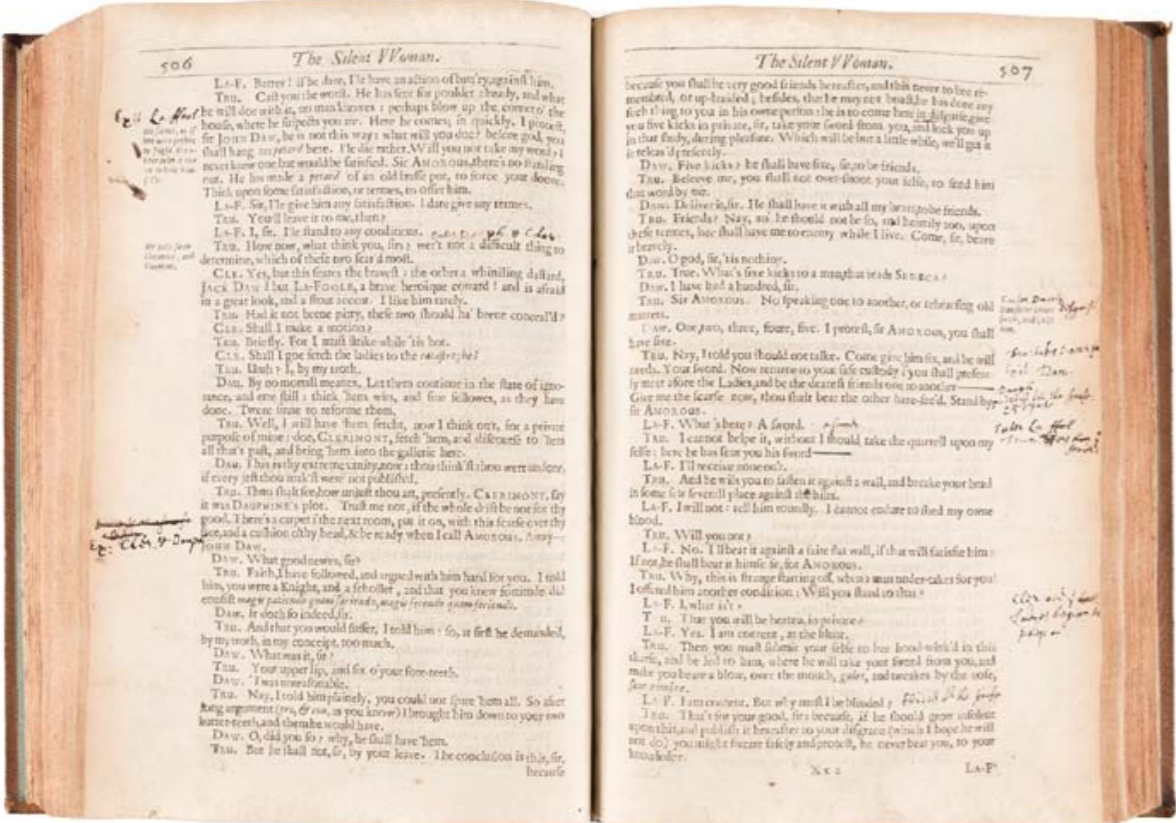 506
The Silent VVoman.
LA-F. Batter! if he dare, I'le have an action of batt'ry, against him.
TRU. Cast you the worst. He has sent for poulder already, and what
he will doe with it, no man knowes: perhaps blow up the corner o' the
house, where he suspects you are. Here he comes, in quickly. I protest,
sir JOHN DAW, he is not this way: what will you doe? before god, you
shall hang no petard here. I'le die rather. Will you not take my word? I
never knew one but would be satisfied. Sir AMOROUS, there's no standing
out. He has made a petard of an old brasse pot, to force your doore.
Think upon some satisfaction, or termes, to offer him.
LA-F. Sir, I'le give him any satisfaction. I dare give any termes.
TRU. You'll leave it to me, then?
LA-F. I, sir. I'le stand to any conditions.
TRU. How now, what think you, sirs? wer't not a difficult thing to
determine, which of these two fear'd most.
CLE. Yes, but this feares the bravest: the other a whiniling dastard,
JACK DAW! but LA-FOOLE, a brave heroique coward! and is afraid
in a great look, and a stout accent. I like him rarely.
TRU. Had it not beene pitty, these two should ha' beene conceal'd?
CLE. Shall I make a motion?
TRU. Briefly. For I must strike while 'tis hot.
CLE. Shall I goe fetch the ladies to the catastrophe?
TRU. Umh? I, by my troth.
DAU. By no mortall meanes. Let them continue in the state of igno-
rance, and erre still: think 'hem wits, and fine fellowes, as they have
done. Twere sinne to reforme them.
TRU. Well, I will have 'hem fetcht, now I think on't, for a private
purpose of mine: doe, CLERIMONT, fetch 'hem, and discourse to 'hem
all that's past, and bring 'hem into the gallerie here.
DAU. This is thy extreme vanity, now: thou think'st thou wert undone,
if every jest thou mak'st were not publish'd.
TRU. Thou shalt see, how unjust thou art, presently. CLERIMONT, say
it was DAUPHINE's plot. Trust me not, if the whole drift be not for thy
good. There's a carpet i' the next room, put it on, with this scarfe over thy
face, and a cushion o' thy head, & be ready when I call AMOROUS. Away—
JOHN DAW.
DAW. What good newes, sir?
TRU. Faith, I have followed, and argued with him hard for you. I told
him, you were a Knight, and a scholler, and that you knew fortitude did
consist magis patiendo quam faciendo, magis ferendo quam feriendo.
DAW. It doth so indeed, sir.
TRU. And that you would suffer, I told him: so, at first he demanded,
by my troth, in my conceipt, too much.
DAW. What was it, sir?
TRU. Your upper lip, and six o' your fore-teeth.
DAW. 'Twas unreasonable.
TRU. Nay, I told him plainely, you could not spare 'hem all. So after
long argument (pro, & con, as you know) I brought him down to your two
butter-teeth, and them he would have.
DAW. O, did you so? why, he shall have 'hem.
TRU. But he shall not, sir, by your leave. The conclusion is this, sir,
because
Ex: La ffool
The Silent VVoman.
507
because you shall be very good friends hereafter, and this never to be re-
membred, or up-braided; besides, that he may not boast, he has done any
such thing to you in his owne person: he is to come here in disguise, give
you five kicks in private, sir, take your sword from you, and lock you up
in that study, during pleasure. Which will be but a little while, we'll get it
releas'd presently.
DAW. Five kicks? he shall have sixe, sir, to be friends.
TRU. Beleeve me, you shall not over-shoot your selfe, to send him
that word by me.
DAW. Deliver it, sir. He shall have it with all my heart, to be friends.
TRU. Friends? Nay, an' he should not be so, and heartily too, upon
these termes, hee shall have me to enemy while I live. Come, sir, beare
it bravely.
DAW. O god, sir, 'tis nothing.
TRU. True. What's sixe kicks to a man, that reads SENECA?
DAW. I have had a hundred, sir.
TRU. Sir AMOROUS. No speaking one to another, or rehearsing old
matters.
DAW. One, two, three, foure, five. I protest, sir AMOROUS, you shall
have sixe.
TRU. Nay, I told you should not talke. Come give him six, and he will
needs. Your sword. Now returne to your safe custody: you shall present-
ly meet afore the Ladies, and be the dearest friends one to another——
Give me the scarfe now, thou shalt beat the other bare-fac'd. Stand by—
sir AMOROUS.
LA-F. What's here? A sword.
TRU. I cannot helpe it, without I should take the quarrell upon my
selfe: here he has sent you his sword——
LA-F. I'll receive none on't.
TRU. And he wils you to fasten it against a wall, and breake your head
in some few severall place against the hilts.
LA-F. I will not: tell him roundly. I cannot endure to shed my owne
blood.
TRU. Will you not?
LA-F. No. I'll beat it against a faire flat wall, if that will satisfie him:
If not, he shall beat it himselfe, for AMOROUS.
TRU. Why, this is strange starting off, when a man under-takes for you!
I offered him another condition: Will you stand to that?
LA-F. I, what is't?
TRU. That you will be beaten, in private.
LA-F. Yes. I am content, at the blunt.
TRU. Then you must submit your selfe to bee hood-wink'd in this
skarfe, and be led to him, where he will take your sword from you, and
make you beare a blow, over the mouth, gules, and tweakes by the nose,
sans nombre.
LA-F. I am content. But why must I be blinded?
TRU. That's for your good, sir: because, if he should grow insolent
upon this, and publish it hereafter to your disgrace (which I hope he will
not do) you might sweare safely and protest, he never beat you, to your
knowledge.
Xx 2
LA-F.
Enter La ffool